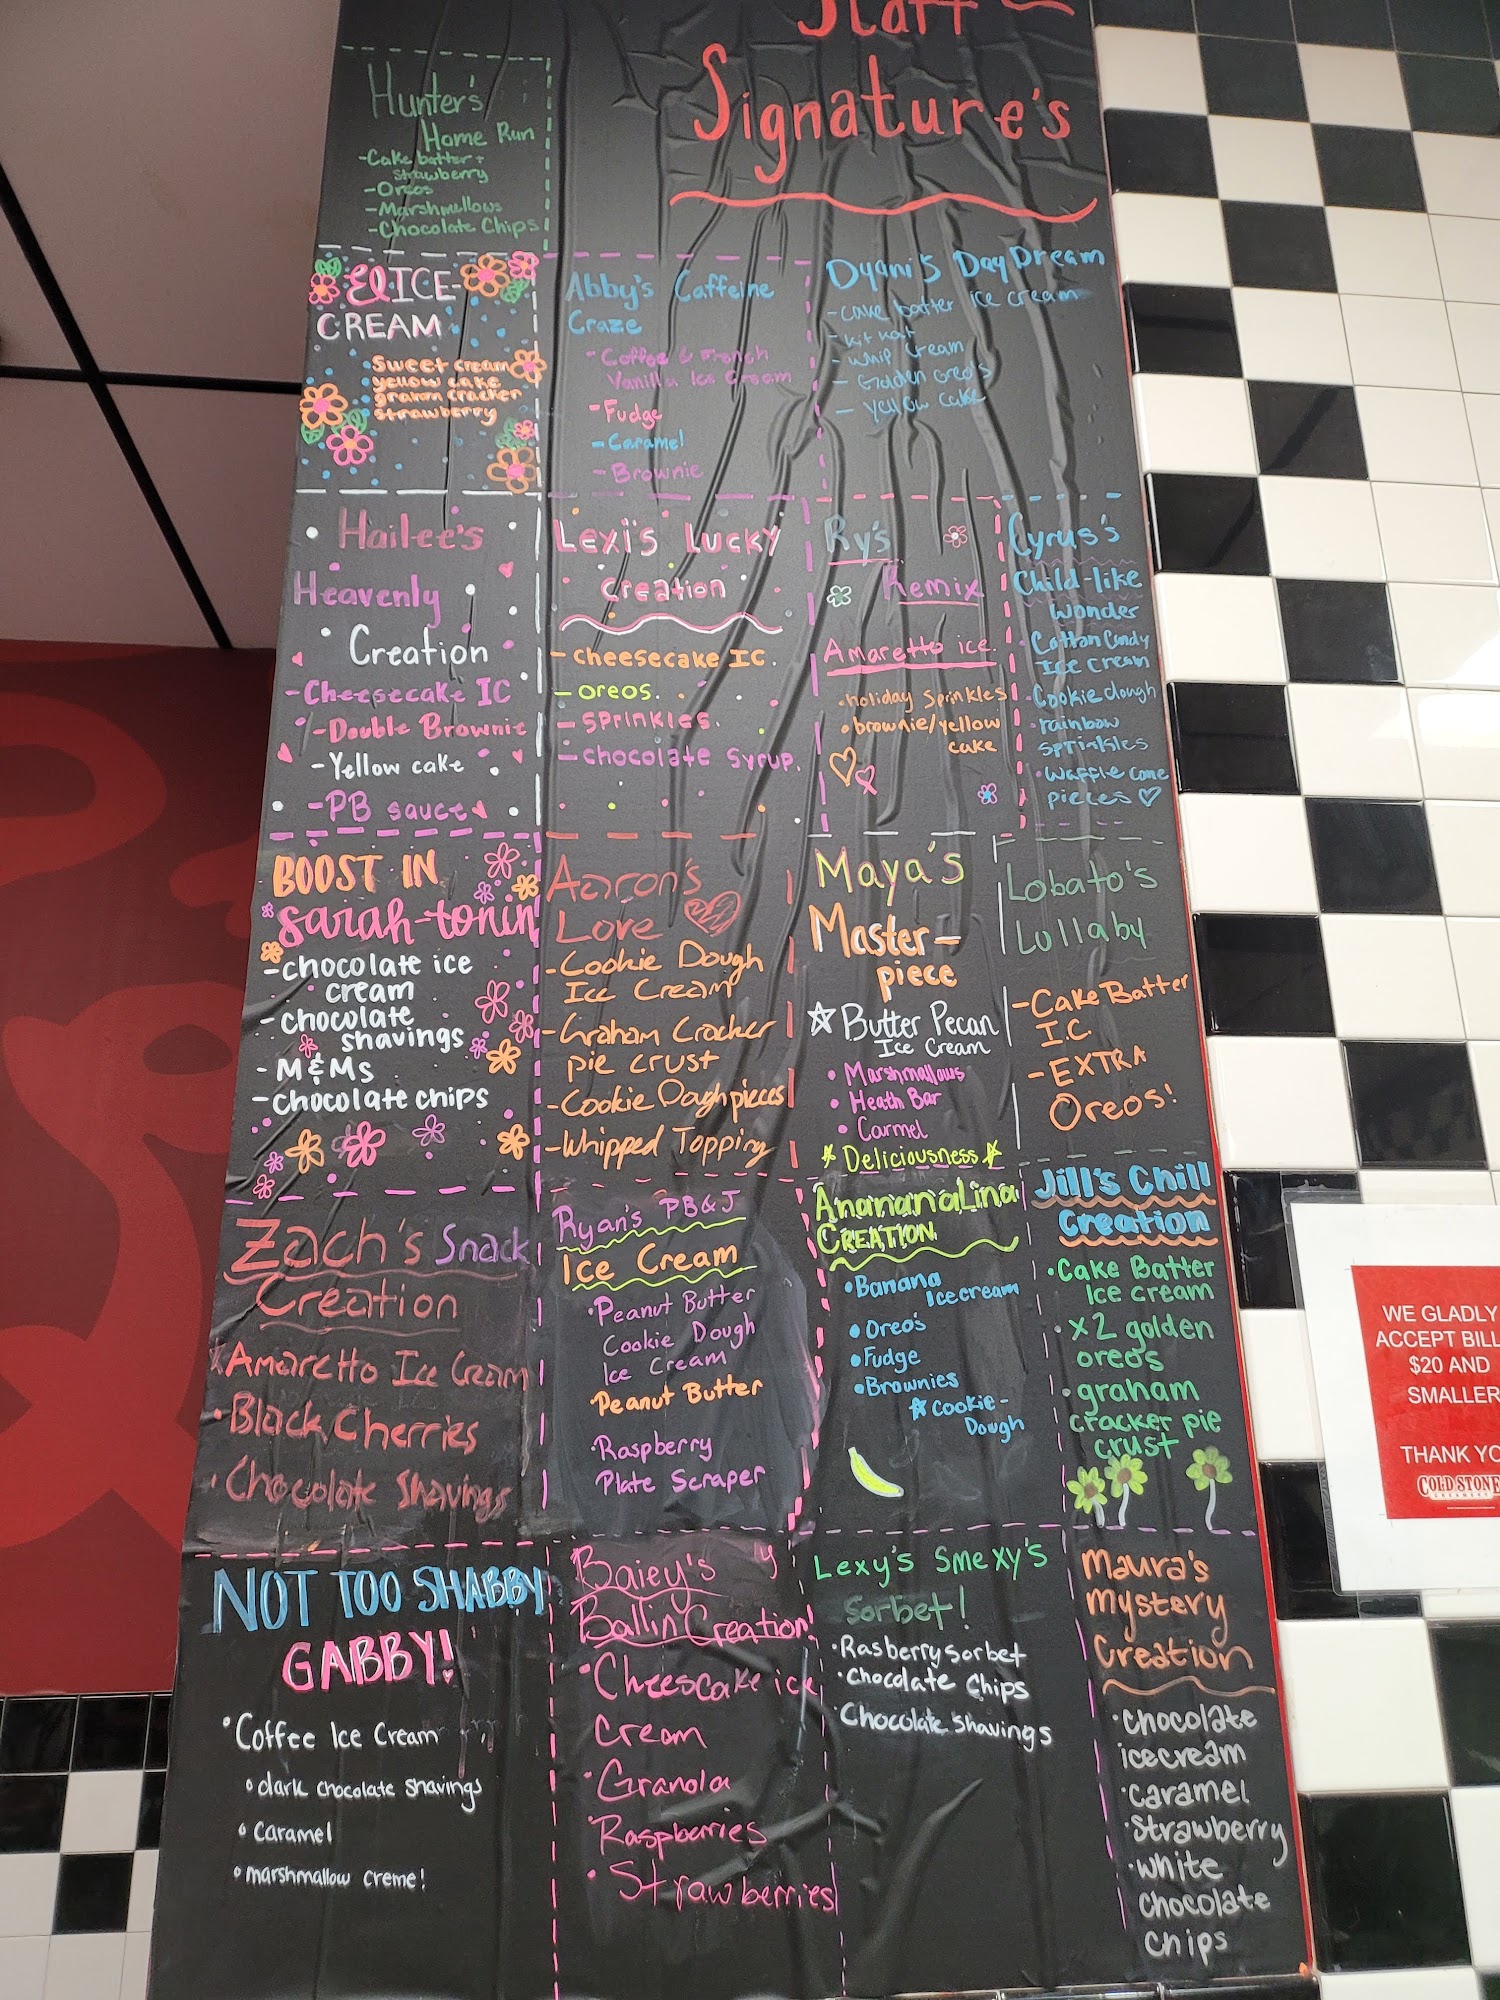 Staff
Signature's
Hunter's
Home Run
-Cake batter +
strawberry
-Oreos
-Marshmellows
-Chocolate Chips
EliCE-
CREAM
sweet cream
yellow cake
graham cracker
strawberry
Abby's Caffeine
Craze
-Coffee & French
Vanilla Ice Cream
-Fudge
-Caramel
-Brownie
Dyani's DayDream
-cake batter ice cream
-kit kat
-whip cream
-Golden Oreo's
-yellow cake
Hailee's
Heavenly
Creation
-Cheesecake IC
-Double Brownie
-Yellow cake
-PB sauce
Lexi's Lucky
Creation
-cheesecake IC.
-oreos.
-sprinkles.
-chocolate syrup.
Ry's
Remix
Amaretto ice.
•holiday sprinkles
•brownie/yellow
cake
Cyrus's
Child-like
wonder
•Cotton Candy
Ice Cream
•Cookie dough
•rainbow
sprinkles
•waffle cone
pieces ♡
BOOST IN
sarah-tonin
-chocolate ice
cream
-chocolate
shavings
-M&Ms
-chocolate chips
Aaron's
Love
-Cookie Dough
Ice Cream
-Graham Cracker
pie crust
-Cookie Dough pieces
-Whipped Topping
Maya's
Master-
piece
☆Butter Pecan
Ice Cream
•Marshmallows
•Heath Bar
•Carmel
☆Deliciousness☆
Lobato's
Lullaby
-Cake Batter
I.C.
-EXTRA
Oreos!
Zach's Snack
Creation
☆Amaretto Ice Cream
•Black Cherries
•Chocolate Shavings
Ryan's PB&J
Ice Cream
•Peanut Butter
Cookie Dough
Ice Cream
•Peanut Butter
•Raspberry
Plate Scraper
AnananaLina
CREATION
•Banana
Ice cream
•Oreo's
•Fudge
•Brownies
☆Cookie-
Dough
Jill's Chill
Creation
•Cake Batter
Ice cream
•x2 golden
oreo's
•graham
cracker pie
crust
NOT TOO SHABBY
GABBY!
•Coffee Ice Cream
•dark chocolate shavings
•caramel
•marshmallow creme!
Baiey's
Ballin Creation!
•Cheescake ice
cream
•Granola
•Raspberries
•Strawberries
Lexy's Smexy's
Sorbet!
•Rasberry sorbet
•Chocolate Chips
•Chocolate shavings
Maura's
Mystery
Creation
•chocolate
icecream
•caramel
•strawberry
•white
chocolate
chips
WE GLADLY
ACCEPT BILL
$20 AND
SMALLER
THANK YO
COLD STONE
CREAMERY